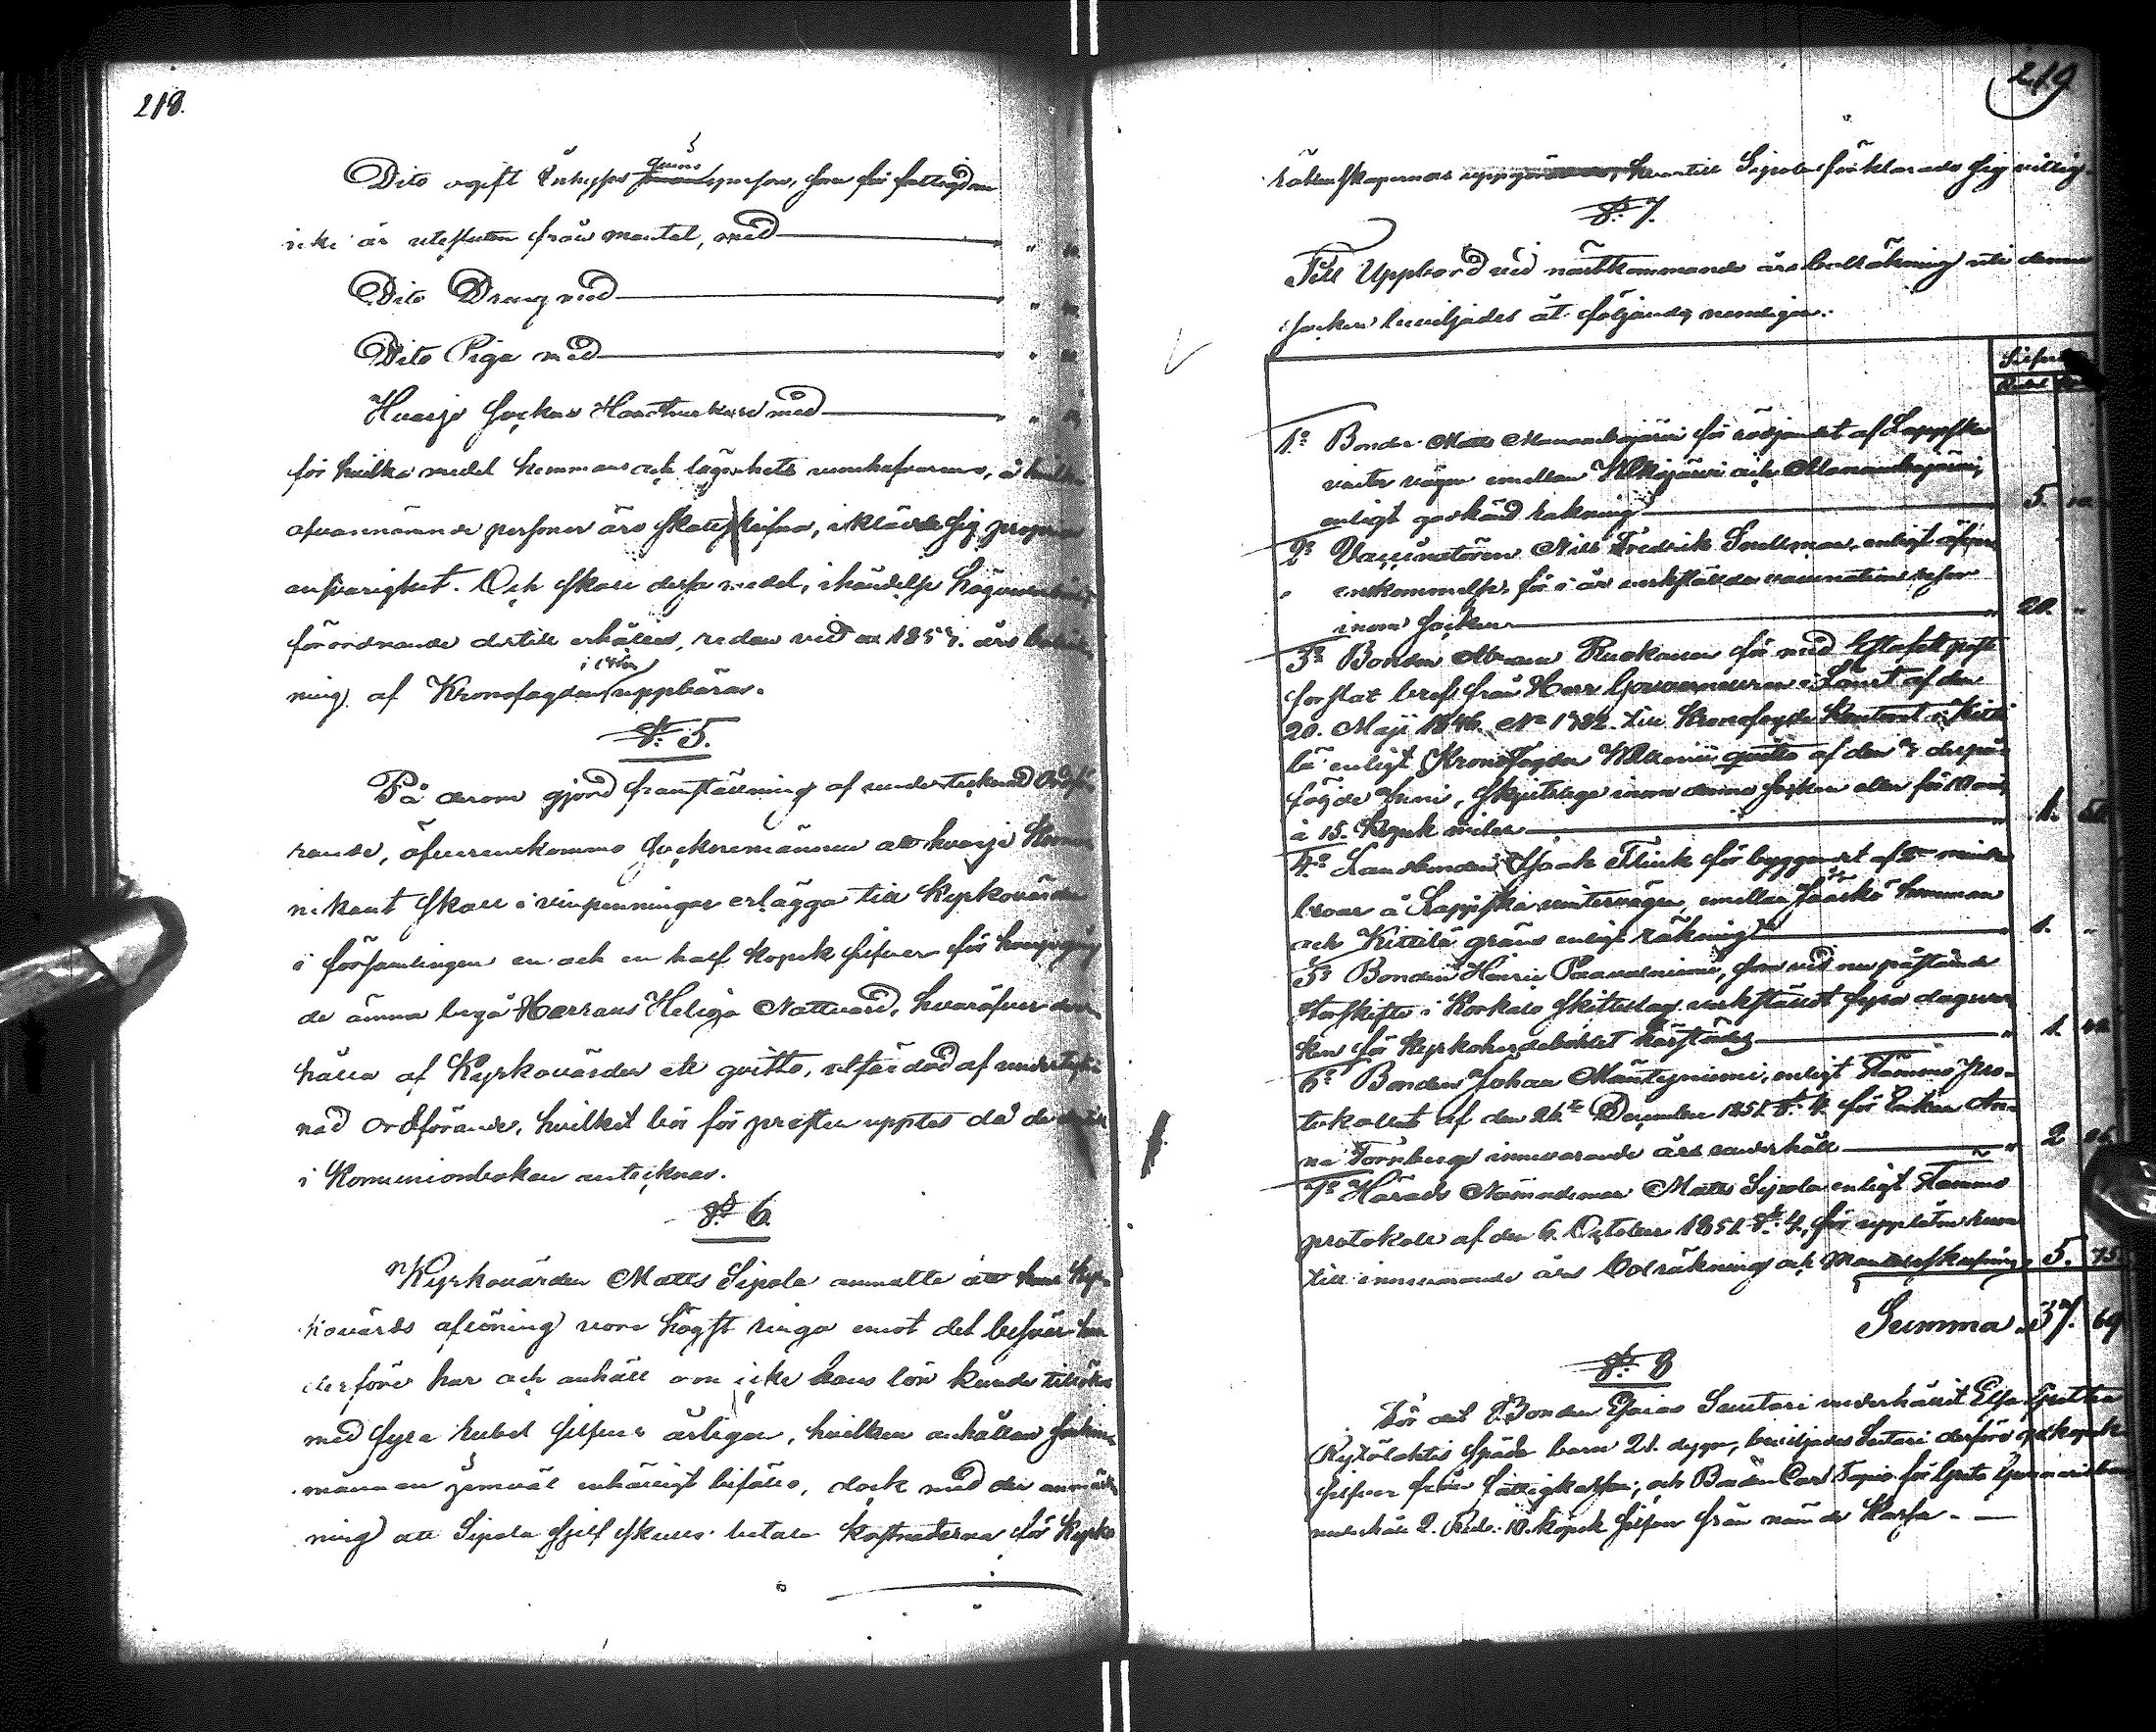 218.
Dito ogift Inhyses qvinsperson, som för fattigdom
icke är utesluten från mantal, med
Dito Dreng med
Dito Piga med
Hvarje Sockne Handtverkare med
för hvilka medel hemmans och lägenhets innehafvarena, å hvilka
ofvannämnde personer äro skattskrifne, iklädde sig
ansvarighet. Och skall dessa medel, ihändelse Högvederbörligt
förordnande dertill erhålles, redan vid 1853. års
ning af Kronofogden uppbäras.
§. 5.
På derom gjord framställning af undertecknad Ordfö-
rande, öfverenskommo Socknemännen att hvarje Kommu-
nikant skall i vinpenningar erlägga till Kyrkovärden
i församlingen en och en half kopek silfver för hvarje gång
de ämna begå Herrans Heliga Nattvard, hvaröfver
hålla af Kyrkovärden ett qvitto, utfärdad af underteck-
nad Ordförande, hvilket bör för presten upptes då de
i Kommunionboken antecknas.
§. 6.
Kyrkovärden Matts Sipola anmälte att hans Kyr-
kovärds aflöning vore högst ringa emot det besvär han
derföre har och anhöll om icke hans lön kunde tillökas
med fyra rubel silfver årligen, hvilken anhållan Sockne-
männen jemväl enhälligt biföllo, dock med den anmärk-
ning att Sipola sjelf skulle betala kostnaderna för Kyrko-
219
räkenskapernas hvartill Sipola förklarade sig villig.
§. 7.
Till Uppbord vid nästkommande års bolräkning uti denna
socken beviljades åt följande nemligen:
Silfver
Rubel
1o Bonden Matts för röjandet af Lappska
vinter vägen emellan och
enligt godkänd räkning 5.
2o Vaccinatören Nils Fredrik Snellman, enligt öfver-
enskommelse, för i år verkställda vaccinations resor
inom socken 20. "
3o Bonden Abram Ruokanen för med Estafett post
forslat bref från Herr Gouverneuren i Länet af den
20. Maji 1846. No 1722. till Kronofogde Kontoret i Kitti-
lä enligt Kronofogden qvitto af den derpå-
följde Juni, skjutslega inom denna socken eller för 10 mil,
à 15. Kopek milen 1. 50
4o Landbonden Isaak Flink för byggandet af 2ne mindre
broar å Lappska vintervägen, emellan Jääskö hemman
och Kittilä gräns enligt räkning 1. "
5o Bonden Henric Paavalniemi, som vid nu påstående
storskifte i Korkalo skifteslag verkställdt fyra dagsver-
ken för Kyrkoherdebolet 1.
6o Bonden Johan Mäntyniemi, enligt Stämmo Pro-
tokollet af den 26te December 1851. §. 4. för Enkan An-
na Tornbergs innevarande års underhåll 2
7o Härads Nämndeman Matts Sipola enligt Stämmo
protokoll af den 6. October 1851. §. 4, för uppläten rum
till innevarande års Bolräkning och Mantalsskrifning 5. 75.
Summa 37. 69
§. 8
För det Bonden Esaias underhållit Elsa Greta
späda barn 21. dygn, beviljades derföre kopek
silfver från fattigkassan, och Bonden Carl Tapio för Greta
underhåll 2. Rub. 10. kopek silfver från nämnde Kassa.